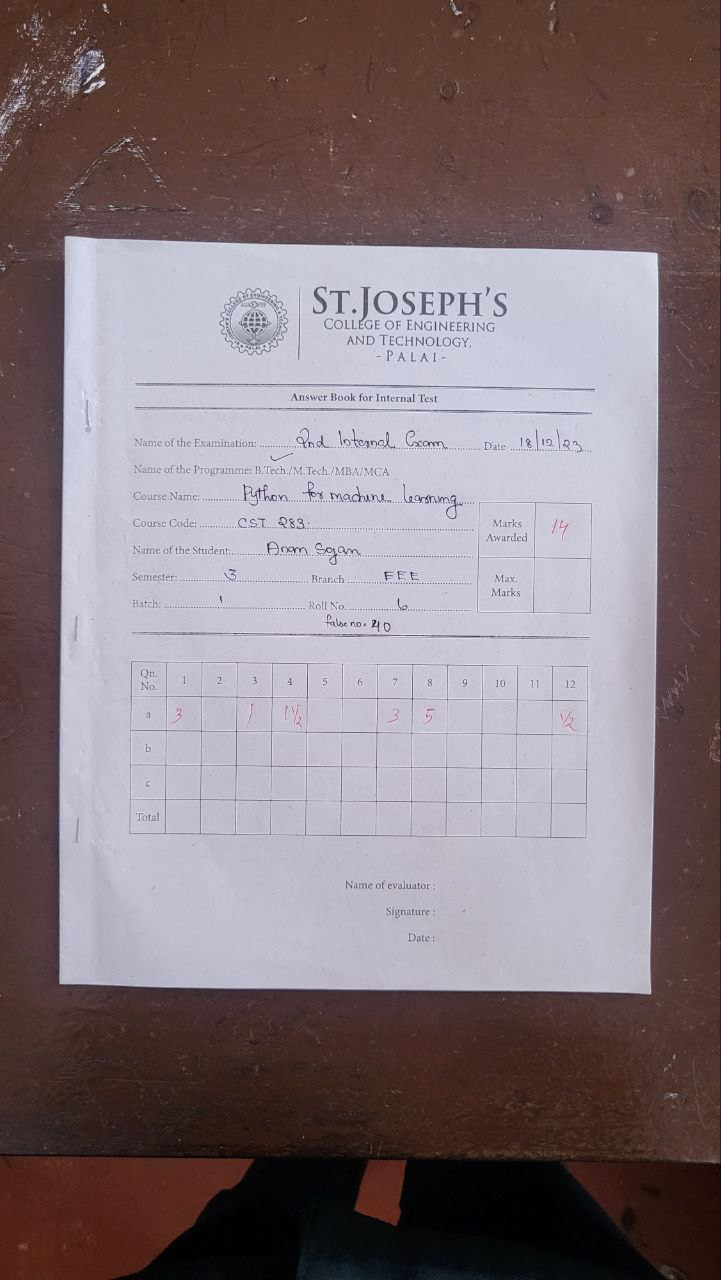 ST.JOSEPH'S
COLLEGE OF ENGINEERING
AND TECHNOLOGY,
- PALAI -
Answer Book for Internal Test
Name of the Examination: 2nd Internal Exam Date 18/12/23
Name of the Programme: B.Tech./M.Tech./MBA/MCA
Course Name: Python for machine learning
Course Code: CST 283.
Marks Awarded 14
Name of the Student: Anam Sojan
Semester: 3 Branch EEE
Max. Marks
Batch: 1 Roll No. 6
false no. 40
Qn. No. 1 2 3 4 5 6 7 8 9 10 11 12
a 3 1 1½ 3 5 ½
b
c
Total
Name of evaluator :
Signature :
Date :